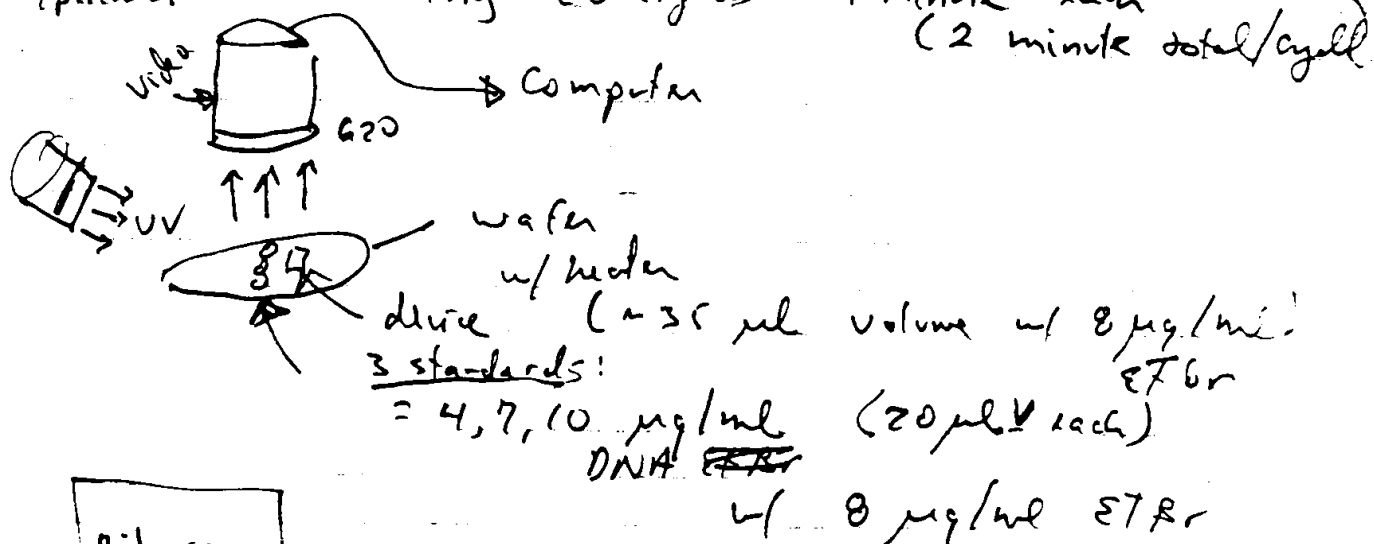 20 cycles 1 minute each
(2 minute total/cycle
Video
Computer
620
UV
wafer
w/ heater
device (~35 µl volume w/ 8 µg/ml
ETBr
3 standards:
= 4, 7, 10 µg/ml (20 µl V each)
DNA
w/ 8 µg/ml ETBr